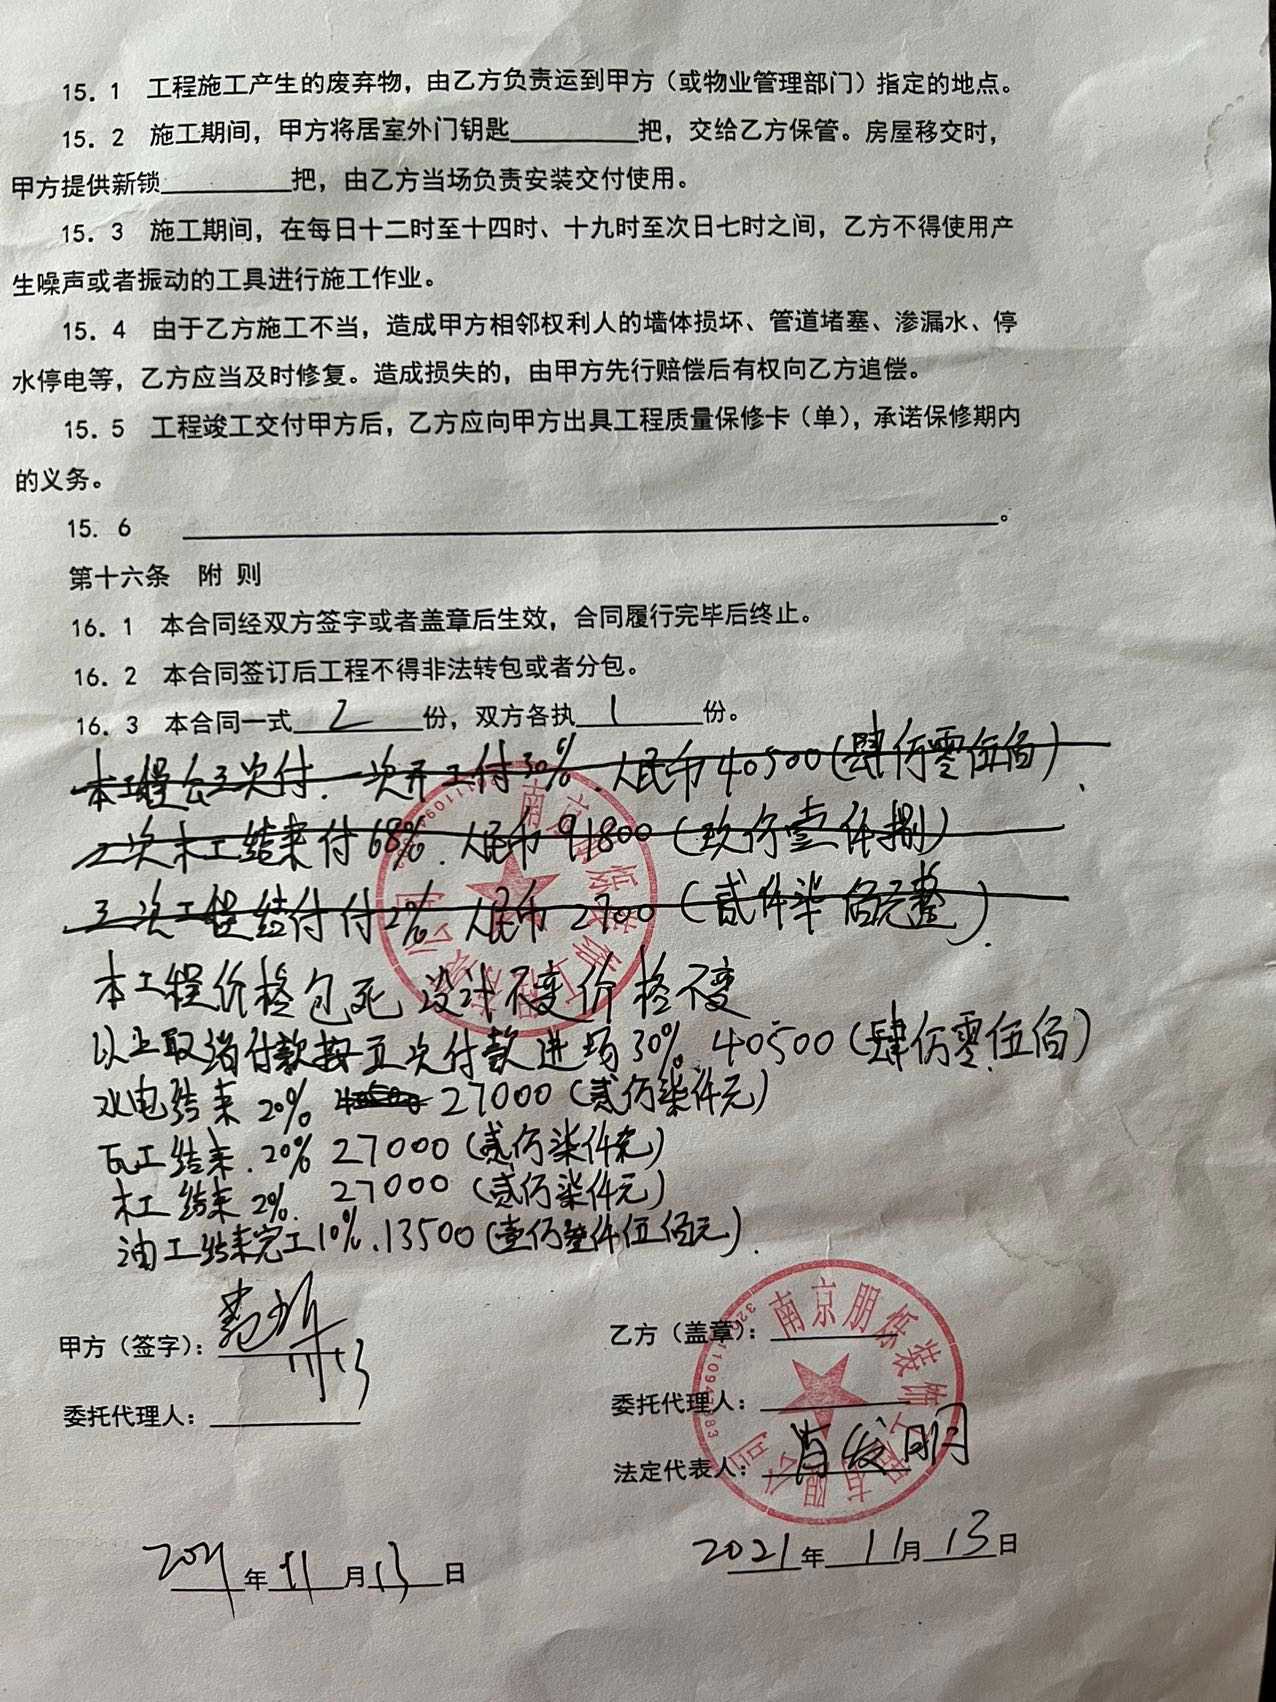 15．1 工程施工产生的废弃物，由乙方负责运到甲方（或物业管理部门）指定的地点。
15．2 施工期间，甲方将居室外门钥匙________把，交给乙方保管。房屋移交时，
甲方提供新锁________把，由乙方当场负责安装交付使用。
15．3 施工期间，在每日十二时至十四时、十九时至次日七时之间，乙方不得使用产
生噪声或者振动的工具进行施工作业。
15．4 由于乙方施工不当，造成甲方相邻权利人的墙体损坏、管道堵塞、渗漏水、停
水停电等，乙方应当及时修复。造成损失的，由甲方先行赔偿后有权向乙方追偿。
15．5 工程竣工交付甲方后，乙方应向甲方出具工程质量保修卡（单），承诺保修期内
的义务。
15．6 ________。
第十六条 附 则
16．1 本合同经双方签字或者盖章后生效，合同履行完毕后终止。
16．2 本合同签订后工程不得非法转包或者分包。
16．3 本合同一式 2 份，双方各执 1 份。
本工程公三次付．一次开工付30%．人民币40500（肆仿零伍佰）．
2次木工结束付68%．人民币91800（玖仿壹仟捌）
三次工程结付付2%人民币2700（贰仟柒佰元整）．
本工程价格包死 设计不变价格不变
以上取消付款按五次付款进场30%．40500（肆仿零伍佰）
水电结束20% 27000（贰仿柒仟元）
瓦工结束．20% 27000（贰仿柒仟元）
木工结束2%．27000（贰仿柒仟元）
油工结束完工10%．13500（壹仿叁仟伍佰元）．
甲方（签字）：
乙方（盖章）：
南京朋炼装饰工程有限公司
委托代理人：
委托代理人：
法定代表人：肖发明
2021年11月13日
2021年11月13日